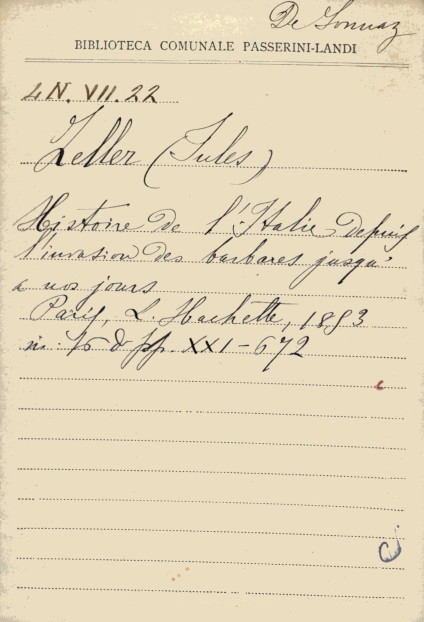 De Sonnaz
BIBLIOTECA COMUNALE PASSERINI-LANDI
4 N. VII. 22
Zeller (Jules)
Histoire de l'Italie depuis
l'invasion des barbares jusqu'
a nos jours
Paris, L. Hachette, 1853
in: 16 d pp. XXI-672